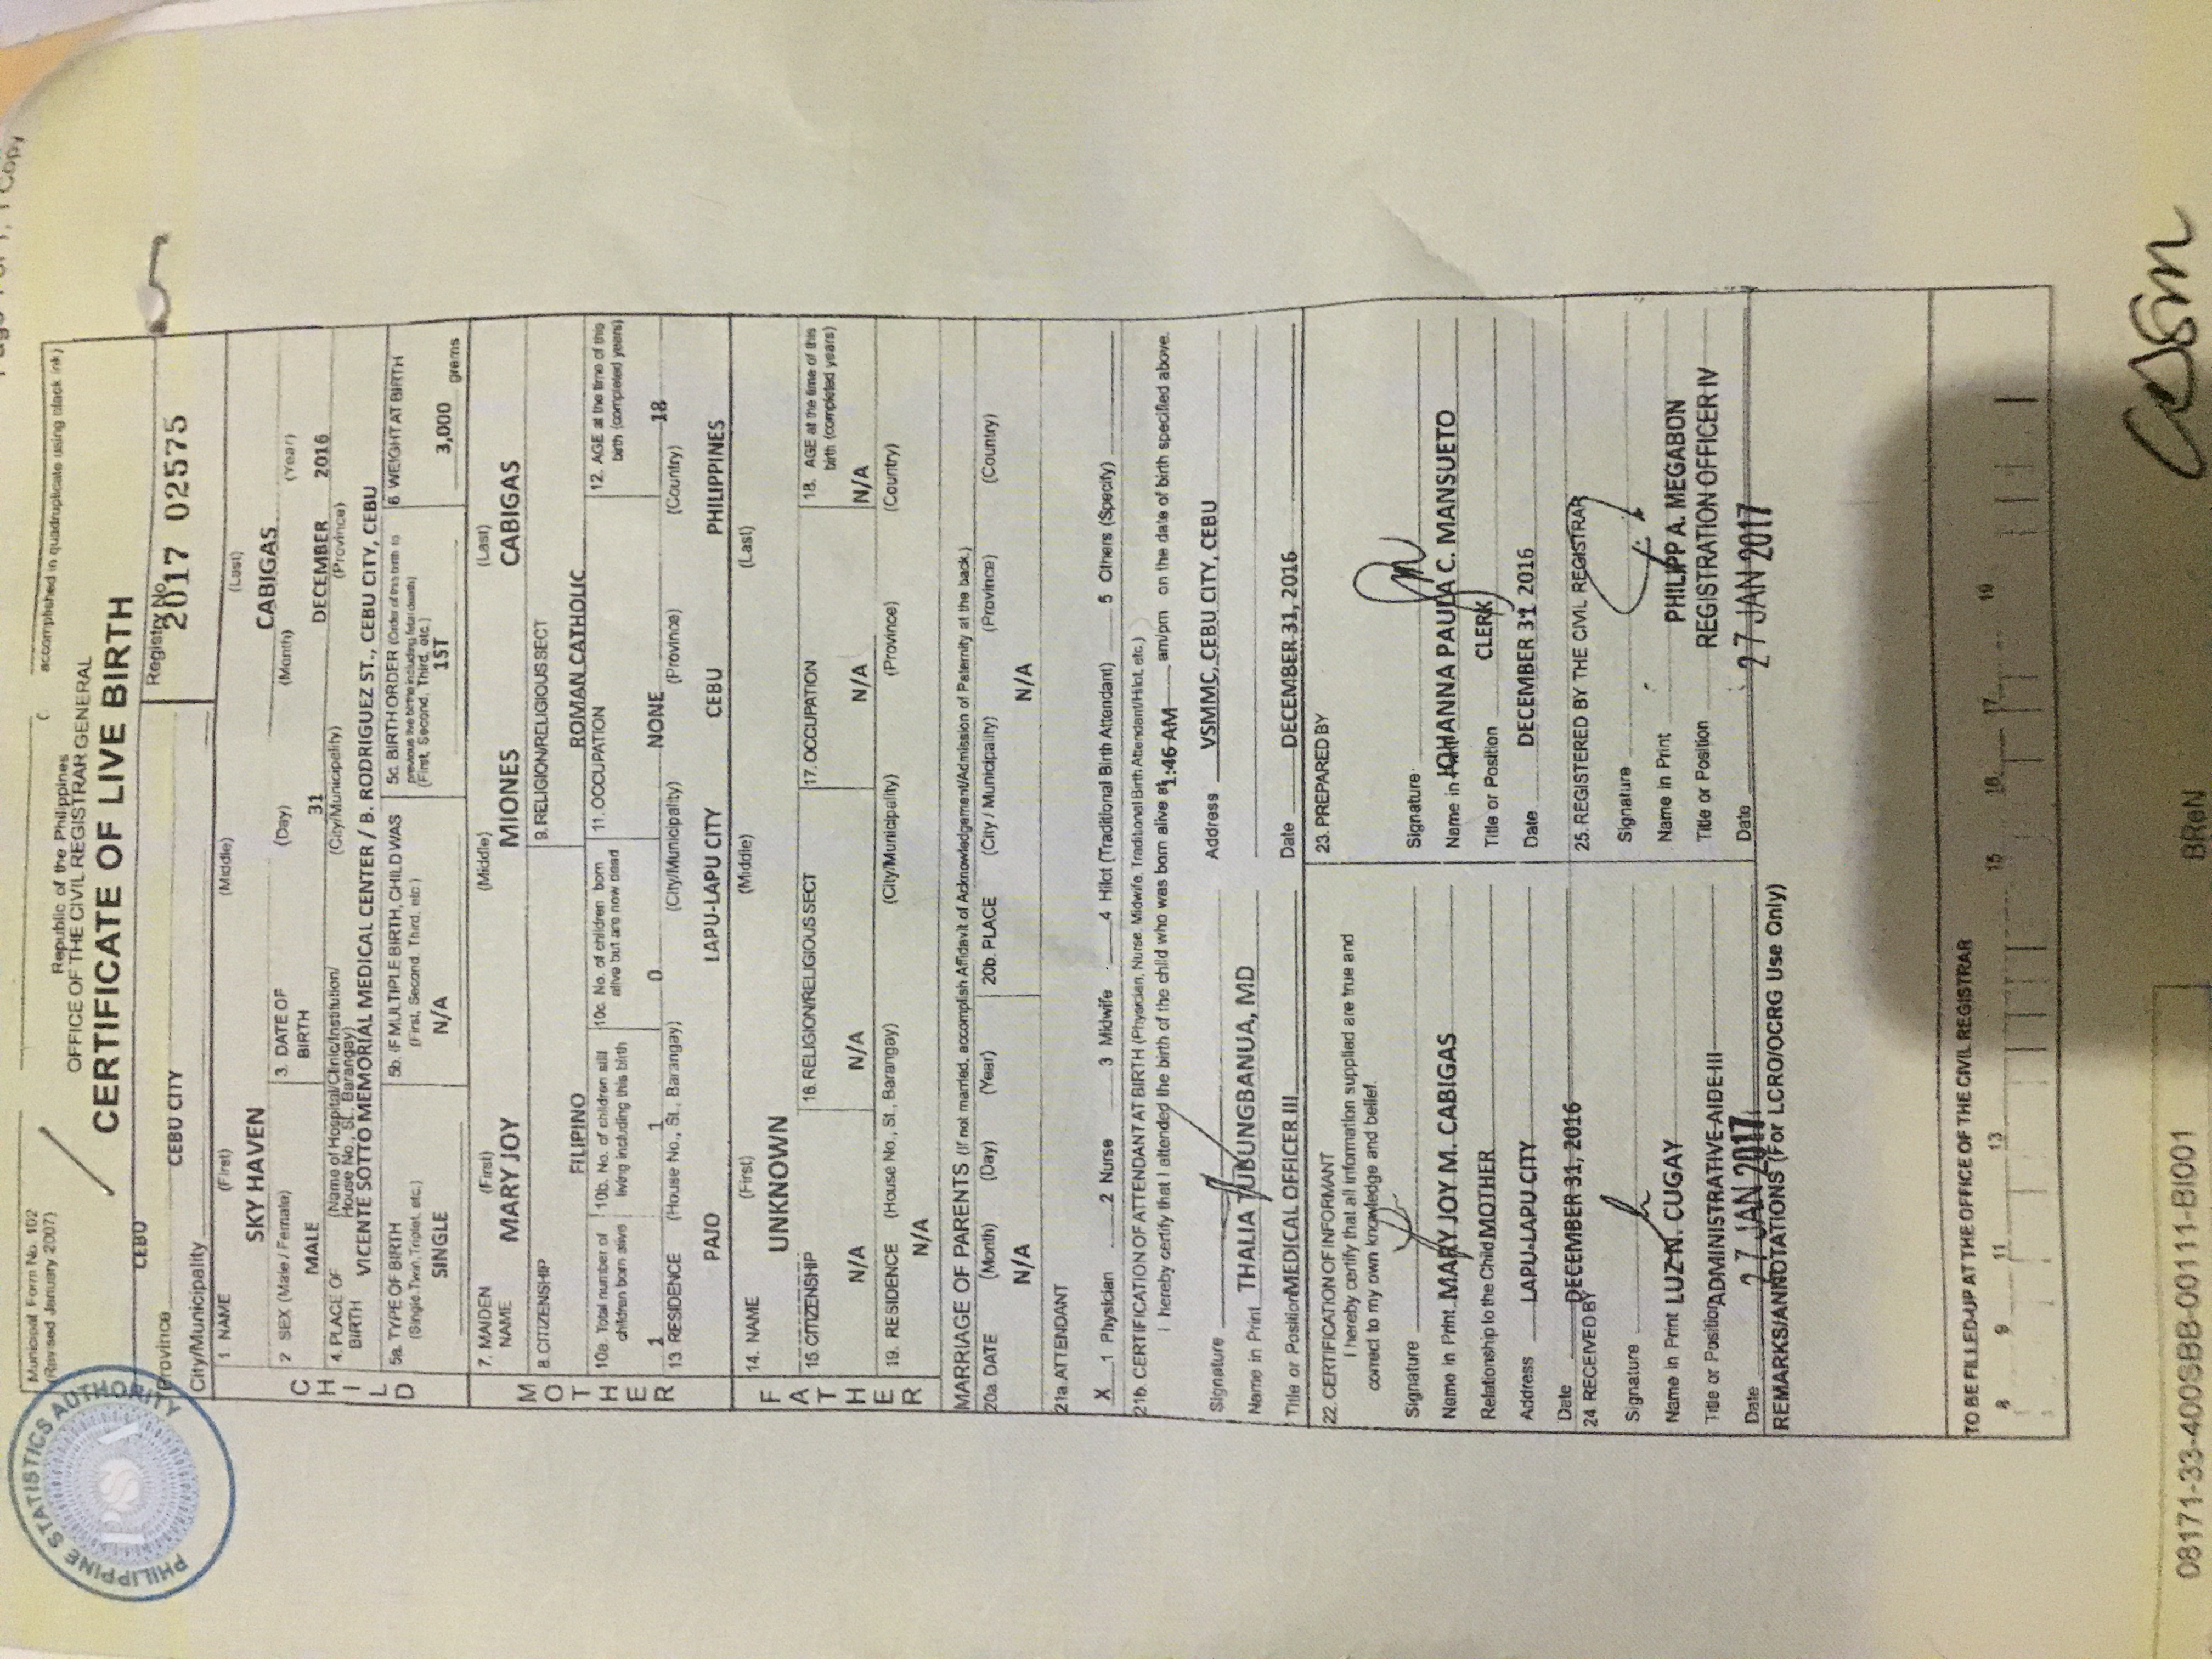 Copy
Municipal Form No. 102
(Revised January 2007)
accomplished in quadruplicate using black ink)
Republic of the Philippines
OFFICE OF THE CIVIL REGISTRAR GENERAL
CERTIFICATE OF LIVE BIRTH
PHILIPPINE STATISTICS AUTHORITY
PSA
Province CEBU
City/Municipality CEBU CITY
Registry No.
2017 02575
CHILD
1. NAME (First) (Middle) (Last)
SKY HAVEN CABIGAS
2. SEX (Male / Female)
MALE
3. DATE OF BIRTH (Day) (Month) (Year)
31 DECEMBER 2016
4. PLACE OF BIRTH (Name of Hospital/Clinic/Institution/ House No., St., Barangay) (City/Municipality) (Province)
VICENTE SOTTO MEMORIAL MEDICAL CENTER / B. RODRIGUEZ ST., CEBU CITY, CEBU
5a. TYPE OF BIRTH (Single, Twin, Triplet, etc.)
SINGLE
5b. IF MULTIPLE BIRTH, CHILD WAS (First, Second, Third, etc.)
N/A
5c. BIRTH ORDER (Order of this birth to previous live births including fetal death) (First, Second, Third, etc.)
1ST
6. WEIGHT AT BIRTH
3,000 grams
MOTHER
7. MAIDEN NAME (First) (Middle) (Last)
MARY JOY MIONES CABIGAS
8. CITIZENSHIP
FILIPINO
9. RELIGION/RELIGIOUS SECT
ROMAN CATHOLIC
10a. Total number of children born alive
1
10b. No. of children still living including this birth
1
10c. No. of children born alive but are now dead
0
11. OCCUPATION
NONE
12. AGE at the time of this birth (completed years)
18
13. RESIDENCE (House No., St., Barangay) (City/Municipality) (Province) (Country)
PAJO LAPU-LAPU CITY CEBU PHILIPPINES
FATHER
14. NAME (First) (Middle) (Last)
UNKNOWN
15. CITIZENSHIP
N/A
16. RELIGION/RELIGIOUS SECT
N/A
17. OCCUPATION
N/A
18. AGE at the time of this birth (completed years)
N/A
19. RESIDENCE (House No., St., Barangay) (City/Municipality) (Province) (Country)
N/A
MARRIAGE OF PARENTS (If not married, accomplish Affidavit of Acknowledgement/Admission of Paternity at the back.)
20a. DATE (Month) (Day) (Year)
N/A
20b. PLACE (City / Municipality) (Province) (Country)
N/A
21a. ATTENDANT
X 1 Physician 2 Nurse 3 Midwife 4 Hilot (Traditional Birth Attendant) 5 Others (Specify)
21b. CERTIFICATION OF ATTENDANT AT BIRTH (Physician, Nurse, Midwife, Traditional Birth Attendant/Hilot, etc.)
I hereby certify that I attended the birth of the child who was born alive at 1:46 AM am/pm on the date of birth specified above.
Signature
Address VSMMC, CEBU CITY, CEBU
Name in Print THALIA TUBUNGBANUA, MD
Title or Position MEDICAL OFFICER III
Date DECEMBER 31, 2016
22. CERTIFICATION OF INFORMANT
I hereby certify that all information supplied are true and
correct to my own knowledge and belief.
Signature
Name in Print MARY JOY M. CABIGAS
Relationship to the Child MOTHER
Address LAPU-LAPU CITY
Date DECEMBER 31, 2016
23. PREPARED BY
Signature
Name in Print JOHANNA PAULA C. MANSUETO
Title or Position CLERK
Date DECEMBER 31 2016
24. RECEIVED BY
Signature
Name in Print LUZ N. CUGAY
Title or Position ADMINISTRATIVE AIDE III
Date 27 JAN 2017
25. REGISTERED BY THE CIVIL REGISTRAR
Signature
Name in Print PHILIPP A. MEGABON
Title or Position REGISTRATION OFFICER IV
Date 27 JAN 2017
REMARKS/ANNOTATIONS (For LCRO/OCRG Use Only)
TO BE FILLED-UP AT THE OFFICE OF THE CIVIL REGISTRAR
8 9 11 13 15 16 17 19
08171-33-400SBB-00111-BI001
BReN